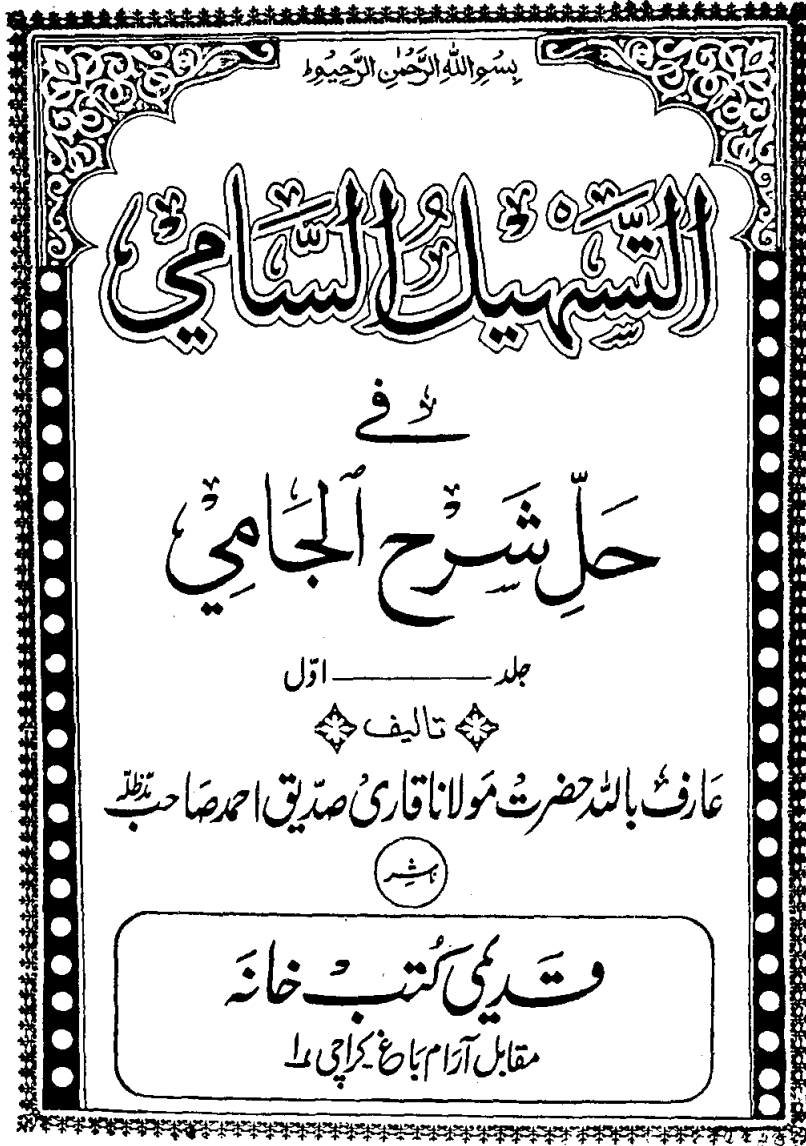 بِسْمِ اللهِ الرَّحْمٰنِ الرَّحِيْمِ
التَّسْهِيْلُ السَّامِيْ
فِيْ
حَلِّ شَرْحِ الْجَامِيْ
جلد ــــــــــ اوّل
تالیف
عَارِفْ بِاللّٰہ حضرتْ مَولانا قَاریْ صدّیق احمد صَاحب مدّظلہٗ
ناشر
قدیمی کُتبْ خانَہ
مقابل آرَام بَاغ کراچی ۱